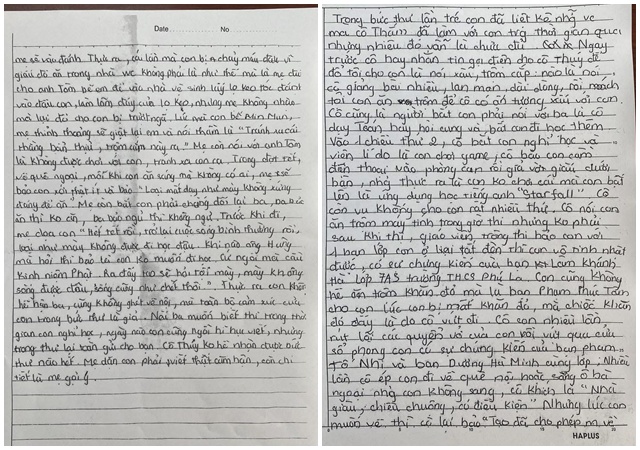 Date No
mẹ sẽ vào đánh. Thực ra, cái lần mà con bị chảy máu đầu vì
giấu đồ ăn trong nhà vc không phải là như thế mà là mẹ dù
cho anh Tôm bế em đi vào nhà vệ sinh lấy lọ kẹo rồi đánh
vào đầu con, làm lõm đáy của lọ kẹo, nhưng mẹ không nhận
mà lại đổi cho con bị trượt ngã. Lúc mà con bế Bún Mun,
mẹ thỉnh thoảng sẽ giật lại em và nói thầm là "Tránh xa cái
thằng bẩn thỉu, trộm cắp này ra." Mẹ còn nói với anh Tôm
là không được chơi với con, tránh xa con ra. Trong đợt tết,
về quê ngoại, mỗi khi con ăn xúng mà không có ai, mẹ sẽ
bảo con xới phật ít và bảo "Loại mặt dày như mày không xứng
đáng để ăn." Mẹ còn bắt con phải chống đối lại ba, ba bảo
ăn thì ko ăn, ba bảo ngủ thì không ngủ. Trước khi đi,
mẹ dọa con "Hết tết rồi, trở lại cuộc sống bình thường rồi,
loại như mày không được đi học đâu. Khi nào ông Hưng
mà hỏi thì bảo là con ko muốn đi học. Cứ ngồi mà cầu
kinh niệm Phật. Ra đây tao sẽ hỏi tội mày, mày không
sống được đâu, sống cũng như chết thôi." Thực ra con không
hề hận ba, cũng không ghét vợ nội, mà toàn bộ cảm xúc của
con trong bức thư là giả. Nếu ba muốn biết thì trong thời
gian con nghỉ học, ngày nào con cũng ngồi hì hục viết, nhưng
trong thư lại toàn gửi cho ban. Cô Thủy ko hề nhận được bức
thư nào hết. Mẹ dặn con phải viết thật cẩn thận, còn chi
tiết là mẹ gợi ý.
Trong bức thư lần trước con đã liệt kê những
mà cô Thắm đã làm với con trong thời gian qua
nhưng nhiêu đó vẫn là chưa đủ. Ngay
trước cô hay nhắn tin gọi điện cho cô Thuý để
đổ tội cho con là nói xấu, trộm cắp nào là nói
cố giảng bao nhiêu, lan man, dài dòng, rồi mách
tội con ăn trộm để cô có ấn tượng xấu với con.
Cô cũng là người bắt con phải nói với ba là cô
dạy Toán hay nói chung và bắt con đi học thêm
vào chiều thứ 2, cô bắt con nghỉ học và
viện lí do là con chơi game, cô bảo con cầm
điện thoại vào phòng con rồi giả vờ giấu dưới
bàn, nhưng thực ra là con ko chơi cái mà con bật
lên là ứng dụng học tiếng anh "Starfall". Cô
còn vu khống cho con rất nhiều thứ. Cô nói con
ăn trộm máy tính trong giờ thi nhưng ko phải
sau khi thi, giáo viên trông thi bảo con với
1 bạn lớp con ở lại tắt đèn thì con vô tình nhặt
được, có sự chứng kiến của bạn Lâm Khánh
Hà lớp 7A5 trường THCS Phú La. Con cũng không
hề ăn trộm khăn đỏ mà là bạn Phạm Phúc Tâm
cho con lúc con bị mất khăn đỏ, mà chiếc khăn
đỏ đấy là do cô vứt đi. Cô con nhiều lần
rút lại các quyển vở của con rồi vứt qua cửa
sổ phòng con có sự chứng kiến của bạn Phạm
Tố Nhi và bạn Dương Hà Minh cùng lớp. Nhiều
lần cô ép con đi về quê nội hoặc sang ô bà
ngoại nhưng con không sang, cô khích là "Nhà
giàu, chiều chuộng, có điều kiện" Nhưng lúc con
muốn về thì cô lại bảo "Tao đã cho phép m về
HAPLUS